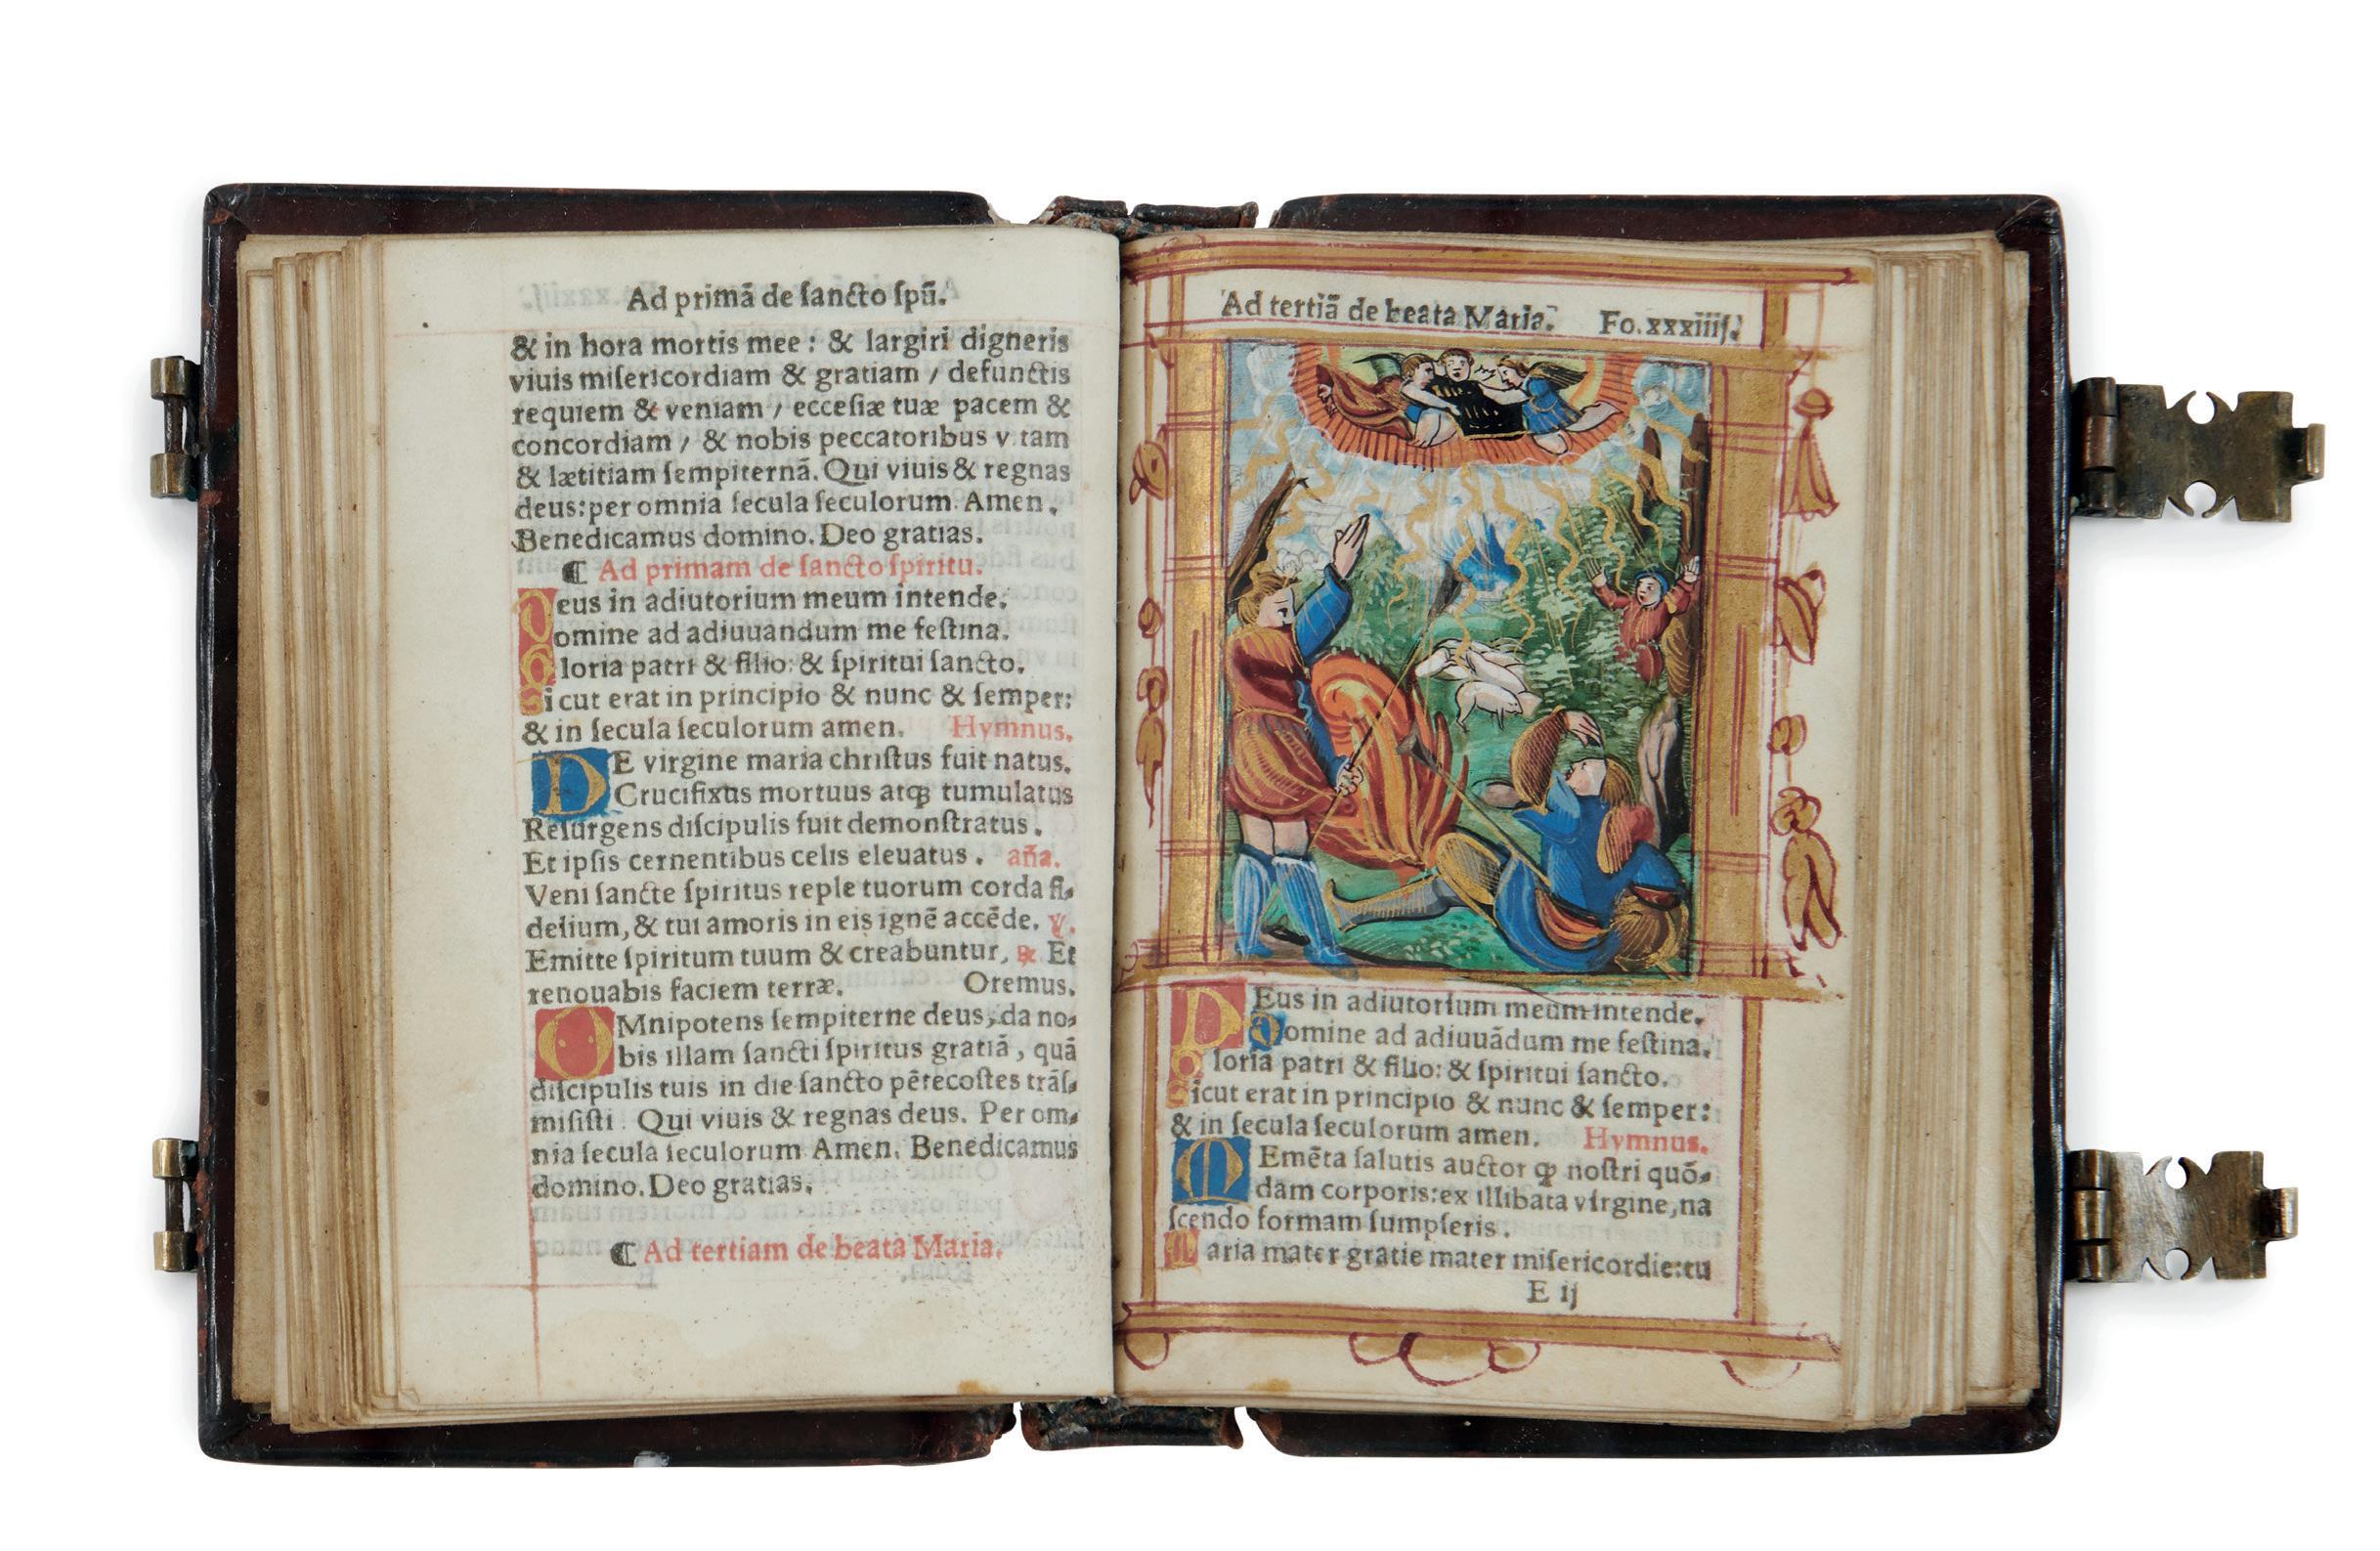 Ad primā de ſancto ſpū.
& in hora mortis mee : & largiri digneris
viuis miſericordiam & gratiam / defunctis
requiem & veniam / eccefiæ tuæ pacem &
concordiam / & nobis peccatoribus v tam
& lætitiam ſempiternā. Qui viuis & regnas
deus: per omnia ſecula ſeculorum Amen.
Benedicamus domino. Deo gratias.
¶ Ad primam de ſancto ſpiritu.
Deus in adiutorium meum intende.
Domine ad adiuuandum me feſtina.
Gloria patri & filio: & ſpiritui ſancto.
Sicut erat in principio & nunc & ſemper:
& in ſecula ſeculorum amen. Hymnus.
DE virgine maria chriſtus fuit natus.
Crucifixus mortuus atqꝫ tumulatus
Reſurgens diſcipulis fuit demonſtratus.
Et ipſis cernentibus celis eleuatus. añа.
Veni ſancte ſpiritus reple tuorum corda fi⸗
delium, & tui amoris in eis ignē accēde. ꝟ.
Emitte ſpiritum tuum & creabuntur, ℟ Et
renouabis faciem terræ. Oremus.
OMnipotens ſempiterne deus, da no⸗
bis illam ſancti ſpiritus gratiā, quā
diſcipulis tuis in die ſancto pētecoſtes trāſ⸗
miſiſti. Qui viuis & regnas deus. Per om⸗
nia ſecula ſeculorum Amen. Benedicamus
domino. Deo gratias.
¶ Ad tertiam de beata Maria.
Ad tertiā de beata Maria. Fo. xxxiiij.
DEus in adiutorium meum intende.
Domine ad adiuuādum me feſtina.
Gloria patri & filio: & ſpiritui ſancto.
Sicut erat in principio & nunc & ſemper:
& in ſecula ſeculorum amen. Hymnus.
MEmēta ſalutis auctor ꝙ noſtri quō⸗
dam corporis: ex illibata virgine, na
ſcendo formam ſumpſeris.
Maria mater gratie mater miſericordie: tu
E ij